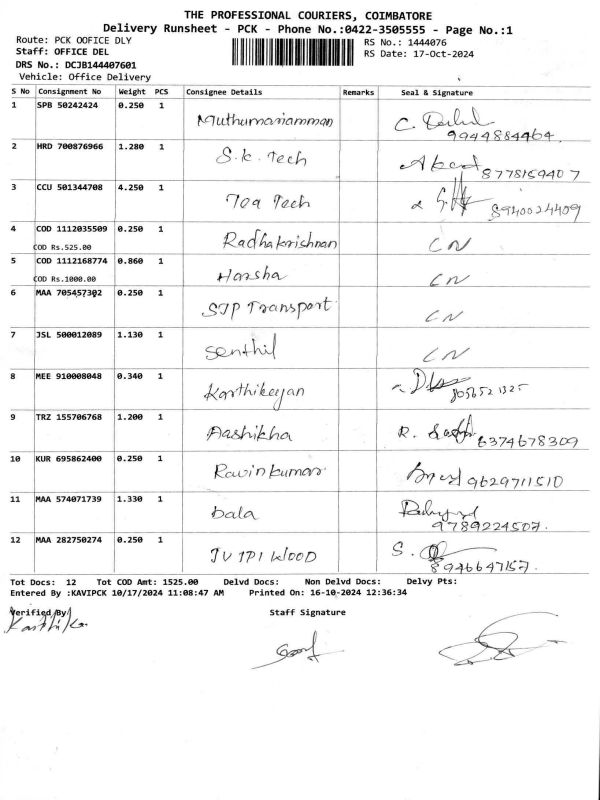 THE PROFESSIONAL COURIERS, COIMBATORE
Delivery Runsheet - PCK - Phone No.:0422-3505555 - Page No.:1
Route: PCK OOFICE DLY RS No.: 1444076
Staff: OFFICE DEL RS Date: 17-Oct-2024
DRS No.: DCJB144407601
Vehicle: Office Delivery
S No Consignment No Weight PCS Consignee Details Remarks Seal & Signature
1 SPB 50242424 0.250 1 Muthumariamman
9944884464.
2 HRD 700876966 1.280 1 S.K. Tech
8778159407
3 CCU 501344708 4.250 1 Tea Tech 8940024409
4 COD 1112035509 0.250 1 Radhakrishnan CN
COD Rs.525.00
5 COD 1112168774 0.860 1 Harsha CN
COD Rs.1000.00
6 MAA 705457302 0.250 1 STP Transport CN
7 JSL 500012089 1.130 1 Senthil CN
8 MEE 910008048 0.340 1 Karthikeyan 8056521325
9 TRZ 155706768 1.200 1 Aashikha R. 6374678309
10 KUR 695862400 0.250 1 Ravinkumar 9629711510
11 MAA 574071739 1.330 1 bala
9789224507.
12 MAA 282750274 0.250 1 WOOD S.
8946647157.
Tot Docs: 12 Tot COD Amt: 1525.00 Delvd Docs: Non Delvd Docs: Delvy Pts:
Entered By :KAVIPCK 10/17/2024 11:08:47 AM Printed On: 16-10-2024 12:36:34
Verified By Staff Signature